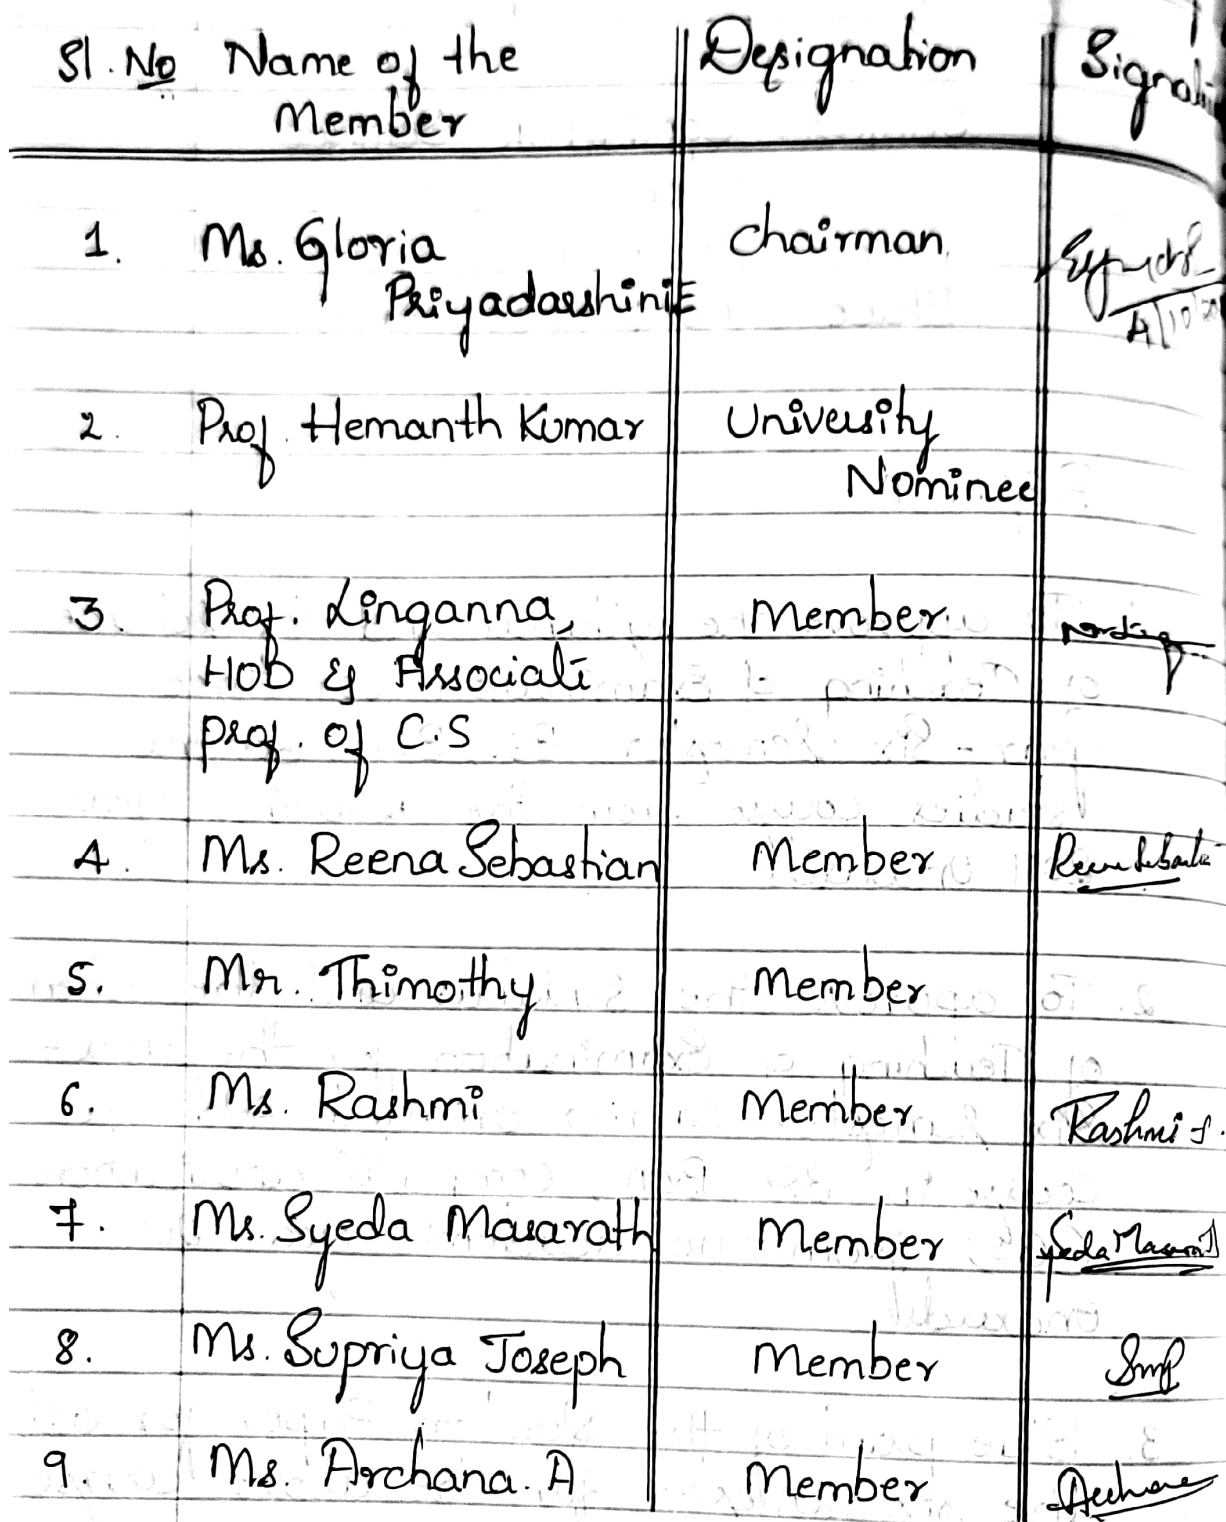 Sl. No Name of the Designation Signat
Member
1. Ms. Gloria Chairman
Priyadarshini E
4/10/20
2. Prof. Hemanth Kumar University
Nominee
3. Prof. Linganna, Member
HOD & Associate
prof. of C.S
4. Ms. Reena Sebastian Member Reena Sebasti
5. Mr. Thimothy Member
6. Ms. Rashmi Member Rashmi S.
7. Ms. Syeda Masarath Member Syeda Masarat
8. Ms. Supriya Joseph Member
9. Ms. Archana. A Member Archana